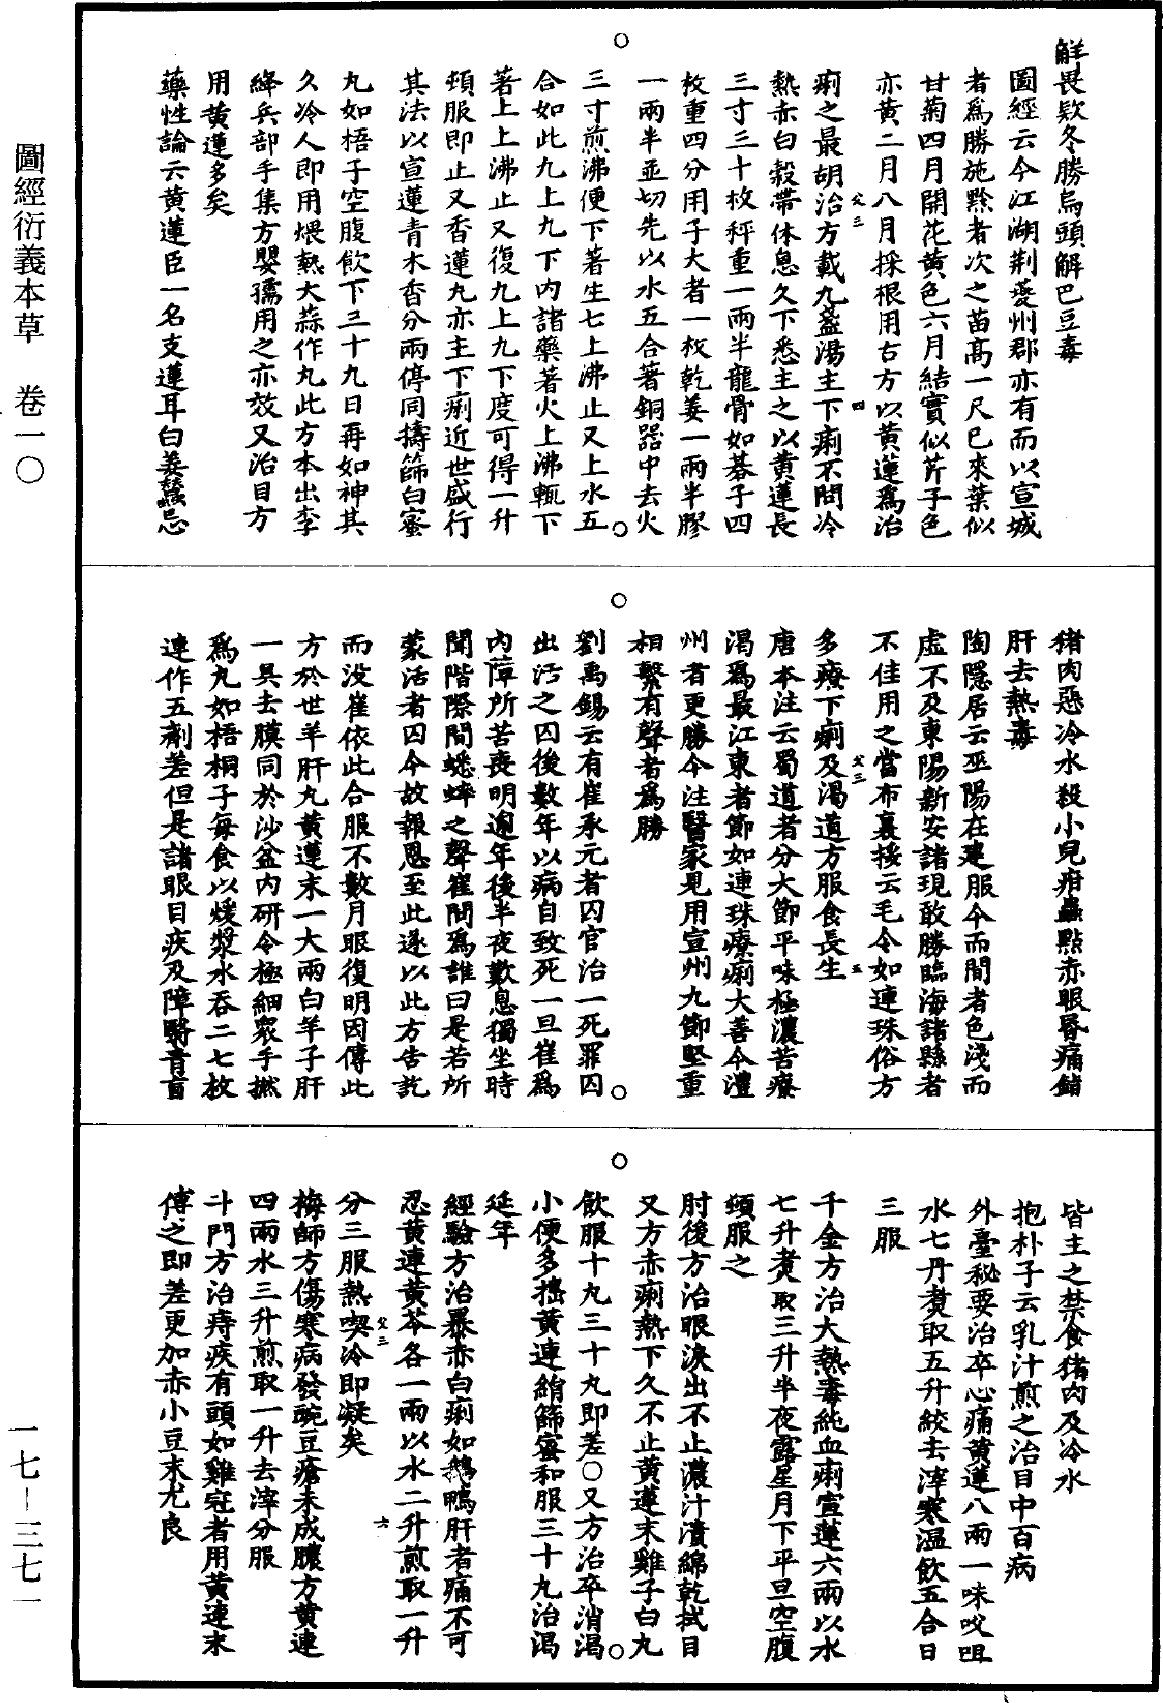 圖經衍義本草 卷一〇
一七—三七一
觧畏欵冬勝烏頭解巴豆毒
圖經云今江湖荆夔州郡亦有而以宣城
者爲勝施黔者次之苗髙一尺巳來葉似
甘菊四月開花黄色六月結實似芹子色
亦黄二月八月採根用古方以黄蓮爲治
痢之最胡洽方載九盞湯主下痢不問冷
父三
四
熱赤白穀帶休息久下悉主之以黄蓮長
三寸三十枚秤重一兩半龍骨如碁子四
枚重四分用子大者一枚乾姜一兩半膠
一兩半並切先以水五合著銅器中去火
三寸煎沸便下著生七上沸止又上水五
合如此九上九下内諸藥著火上沸輒下
著上上沸止又復九上九下度可得一升
頓服即止又香蓮丸亦主下痢近世盛行
其法以宣蓮青木香分兩停同擣篩白蜜
丸如梧子空腹飲下三十九日再如神其
久冷人即用煨熱大蒜作丸此方本出李
絳兵部手集方嬰孺用之亦效又治目方
用黄蓮多矣
藥性論云黄蓮臣一名支蓮耳白姜蠶忌
猪肉惡冷水殺小兒疳蟲點赤眼昏痛鎮
肝去熱毒
陶隱居云巫陽在建服今而間者色淺而
虚不及東陽新安諸現敢勝臨海諸縣者
不佳用之當布裹挼云毛令如連珠俗方
多療下痢及渴道方服食長生
父三
五
唐本注云蜀道者分大節平味極濃苦療
渴爲最江東者節如連珠療痢大善今澧
州者更勝今注醫家見用宣州九節堅重
相繫有聲者爲勝
劉禹錫云有崔承元者囚官治一死罪囚
出活之囚後數年以病自致死一旦崔爲
内障所苦喪明逾年後半夜歎息獨坐時
聞階際間蟋蟀之聲崔問爲誰曰是若所
蒙活者囚今故報恩至此遂以此方告訖
而没崔依此合服不數月眼復明因傳此
方於世羊肝丸黄連末一大兩白羊子肝
一具去膜同於沙盆内研令極細衆手撚
爲丸如梧桐子每食以煖漿水吞二七枚
連作五劑差但是諸眼目疾及障翳青盲
皆主之禁食猪肉及冷水
抱朴子云乳汁煎之治目中百病
外臺秘要治卒心痛黄蓮八兩一味㕮咀
水七升煑取五升絞去滓寒温飲五合日
三服
千金方治大熱毒純血痢宣蓮六兩以水
七升煑取三升半夜露星月下平旦空腹
頓服之
肘後方治眼淚出不止濃汁漬綿乾拭目
又方赤痢熱下久不止黄蓮末雞子白丸
飲服十九三十丸即差〇又方治卒消渴
小便多搗黄連絹篩蜜和服三十丸治渴
延年
經驗方治暴赤白痢如鵝鴨肝者痛不可
忍黄連黄芩各一兩以水二升煎取一升
分三服熱喫冷即凝矣
父三
六
梅師方傷寒病發豌豆瘡未成膿方黄連
四兩水三升煎取一升去滓分服
斗門方治痔疾有頭如雞冠者用黄連末
傅之即差更加赤小豆末尤良